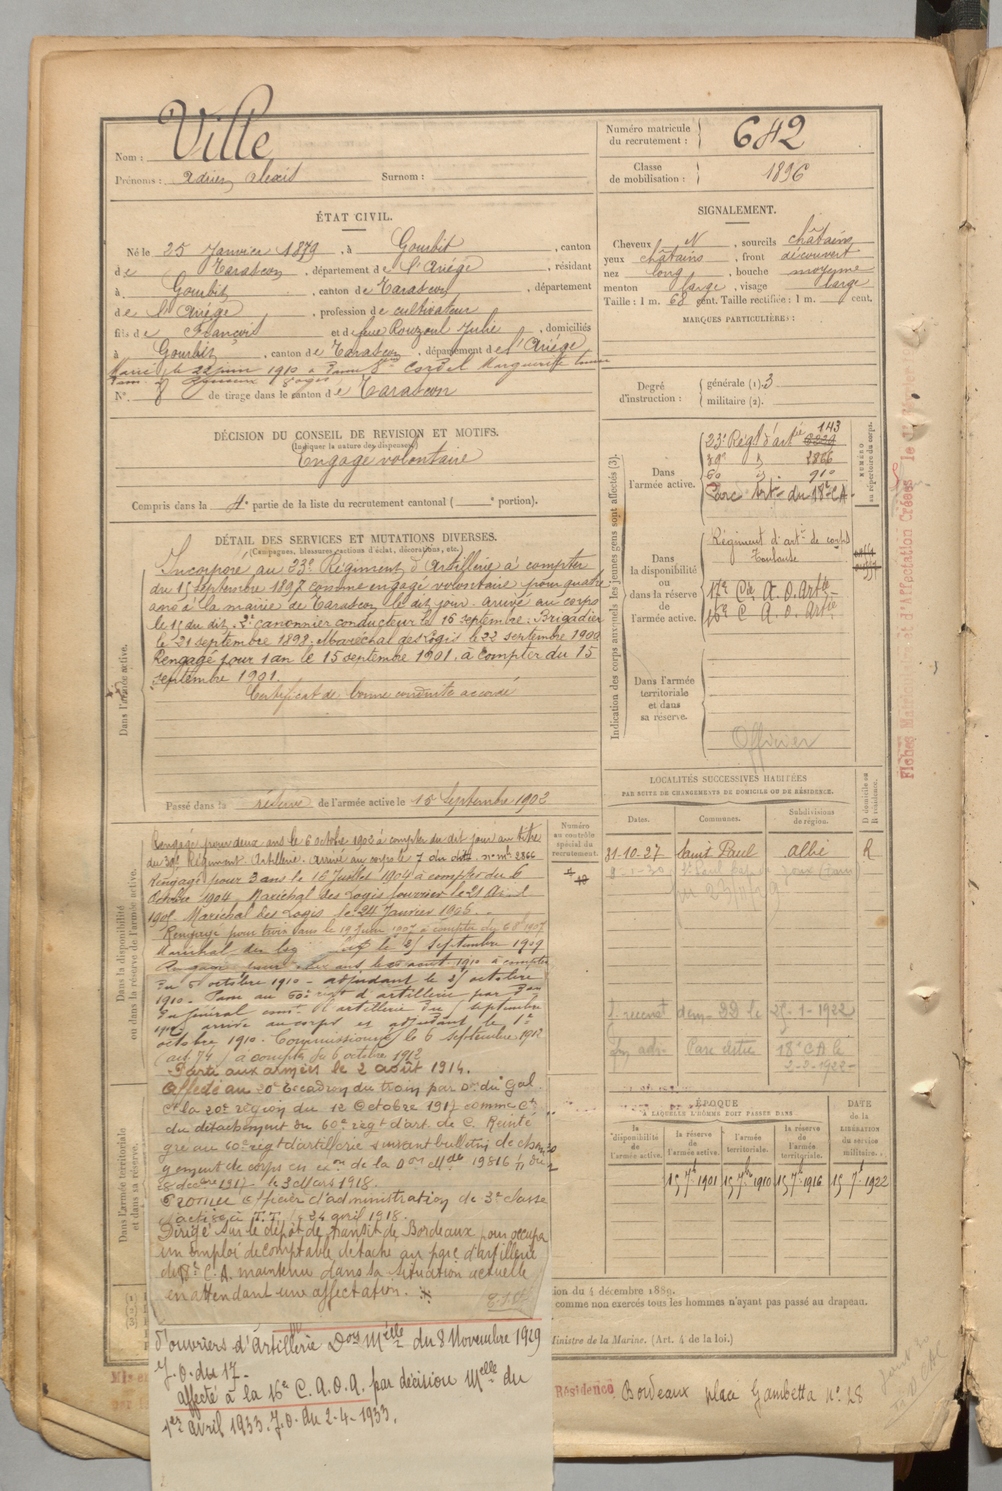 Nom : Ville
Prénoms : Adrien Alexis Surnom :
Numéro matricule du recrutement : 642
Classe de mobilisation : 1896
ÉTAT CIVIL.
Né le 25 Janvier 1879, à Gourbit, canton
de Tarascon, département de l'Ariège, résidant
à Gourbit, canton de Tarascon, département
de l'Ariège, profession de cultivateur
fils de François et de feue Rouzoul Julie, domiciliés
à Gourbit, canton de Tarascon, département de l'Ariège
Marié le 22 juin 1910 à Marguerite
N° 8 de tirage dans le canton de Tarascon
SIGNALEMENT.
Cheveux N, sourcils châtains
yeux châtains, front découvert
nez long, bouche moyenne
menton large, visage large
Taille : 1 m. 68 cent. Taille rectifiée : 1 m. cent.
MARQUES PARTICULIÈRES :
Degré d'instruction : générale (1). 3
militaire (2).
DÉCISION DU CONSEIL DE REVISION ET MOTIFS.
(Indiquer la nature des dispenses)
Engagé volontaire
Compris dans la 4e partie de la liste du recrutement cantonal ( e portion).
DÉTAIL DES SERVICES ET MUTATIONS DIVERSES.
(Campagnes, blessures, actions d'éclat, décorations, etc.)
Dans l'armée active.
Incorporé au 23e Régiment d'Artillerie à compter
du 15 septembre 1897 comme engagé volontaire pour quatre
ans à la mairie de Tarascon le dit jour. Arrivé au corps
le 15 du dit. 2e canonnier conducteur le 16 septembre. Brigadier
le 21 septembre 1898. Maréchal des Logis le 22 septembre 1900
Rengagé pour 1 an le 15 septembre 1901, à compter du 15
septembre 1901.
Certificat de bonne conduite accordé
Passé dans la réserve de l'armée active le 15 Septembre 1902
Indication des corps auxquels les jeunes gens sont affectés (3).
NUMÉRO au répertoire du corps.
Dans l'armée active.
23e Régt d'artie 143
39e " 2866
60 " 910
Parc Art. du 18e CA
Dans la disponibilité ou dans la réserve de l'armée active.
Régiment d'artie de corps
Toulouse
17e Cie A. O. Artie
16e C A. O. Artie
Dans l'armée territoriale et dans sa réserve.
Officier
LOCALITÉS SUCCESSIVES HABITÉES
PAR SUITE DE CHANGEMENTS DE DOMICILE OU DE RÉSIDENCE.
Dates. Communes. Subdivisions de région. D domicile ou R résidence.
31-10-27 Saint Paul Albi R
25-1-1922
Parc 18e CA le
2-2-1922
Numéro au contrôle spécial du recrutement.
Dans la disponibilité ou dans la réserve de l'armée active.
Rengagé pour deux ans le 6 octobre 1902 à compter du dit jour au titre
du 39e Régiment Artillerie. Arrivé au corps le 7 du dit. n° mle 2866
Rengagé pour 3 ans le 16 Juillet 1904 à compter du 6
Octobre 1904. Maréchal des Logis fourrier le 21
1905. Maréchal des Logis le 24 Janvier 1906.
Rengagé pour trois ans le 19 Juin 1907 à compter du 6 8bre 1907
Maréchal des log chef le 25 Septembre 1909
août 1910 à compter
du 6 octobre 1910 - adjudant le 25 octobre
1910 - Passé au 60e régt d'artillerie par
du général comt l'artillerie du septembre
arrivé au corps et adjudant le 1er
octobre 1910. Commissionné le 6 septembre 1912
(art. 74) à compter du 6 octobre 1912
Parti aux armées le 2 août 1914.
Affecté au 20e Escadron du train par Don du Gal
Ct la 20e région du 12 Octobre 1917 comme Ct
du détachement du 60e régt d'art. de C. Réinté
gré au 60e régt d'artillerie suivant bulletin de chan
gement de corps en exon de la Don Mlle 19816 du
8 décbre 1917 - le 3 Mars 1918.
Promu Officier d'administration de 3e classe
active à T.T. le 24 avril 1918.
Dirigé sur le dépôt de transit de Bordeaux pour occuper
un emploi de comptable détaché au parc d'artillerie
du 18e C.A. maintenu dans sa situation actuelle
en attendant une affectation.
Dans l'armée territoriale et dans sa réserve.
d'ouvriers d'artillerie Don Mlle du 8 Novembre 1929
J.O. du 17.
affecté à la 16e C.A.O.A. par décision Mlle du
1er avril 1933. J.O. du 2-4-1933.
ÉPOQUE
À LAQUELLE L'HOMME DOIT PASSER DANS
la disponibilité de l'armée active. la réserve de l'armée active. l'armée territoriale. la réserve de l'armée territoriale.
DATE de la LIBÉRATION du service militaire.
15 7bre 1901 15 7bre 1910 15 7bre 1916 15 7bre 1922
ion du 4 décembre 1889.
comme non exercés tous les hommes n'ayant pas passé au drapeau.
Ministre de la Marine. (Art. 4 de la loi.)
Résidence Bordeaux place Gambetta n° 28